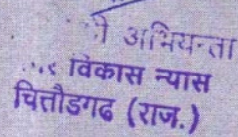 अभियन्ता
विकास न्यास
चित्तौडगढ (राज.)